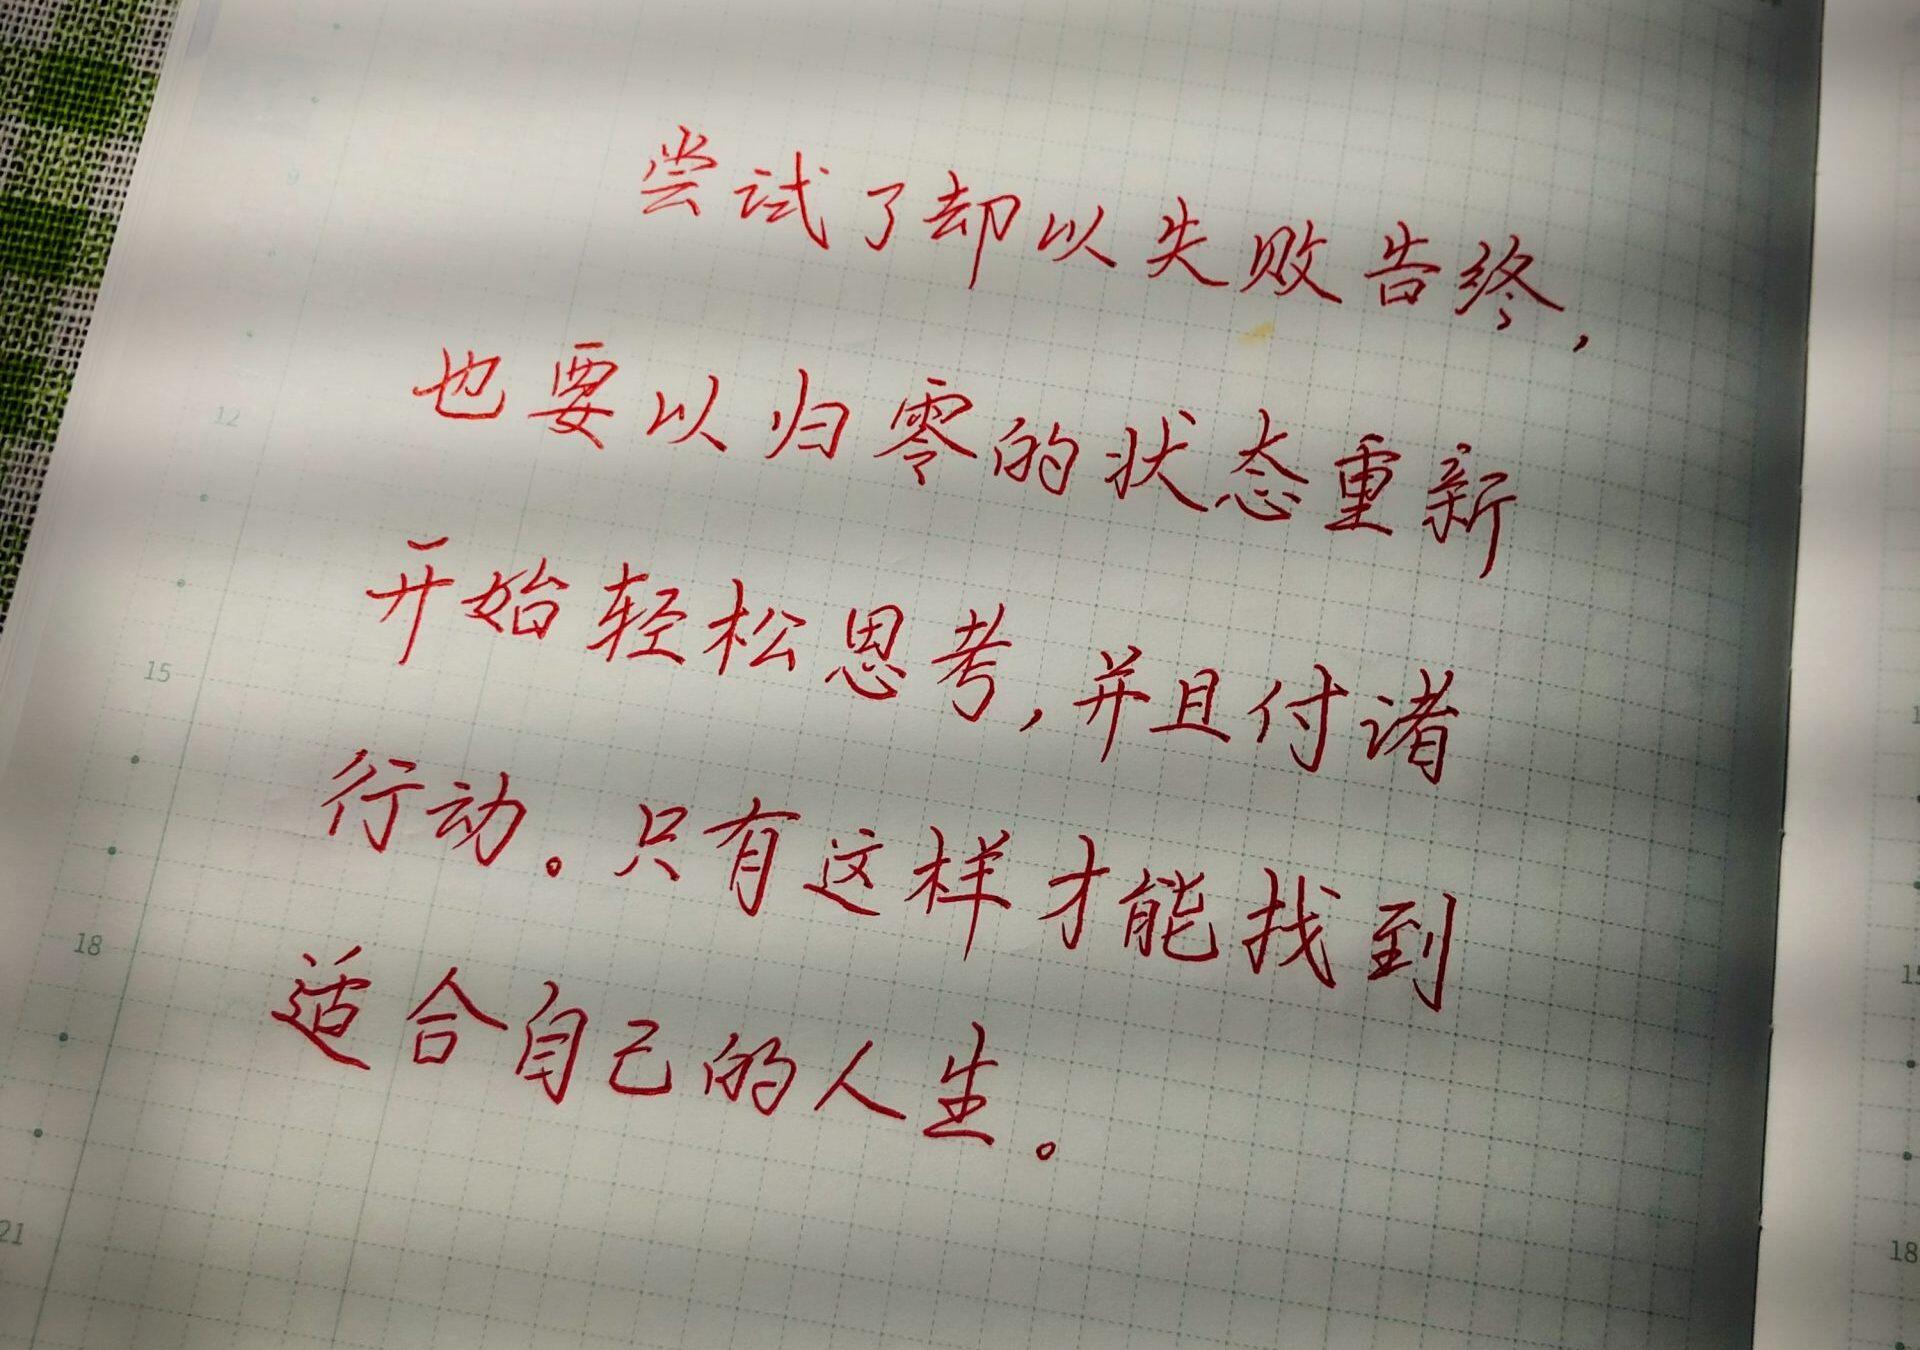 尝试了却以失败告终，
也要以归零的状态重新
开始轻松思考，并且付诸
行动。只有这样才能找到
适合自己的人生。
12
15
18
21
15
18